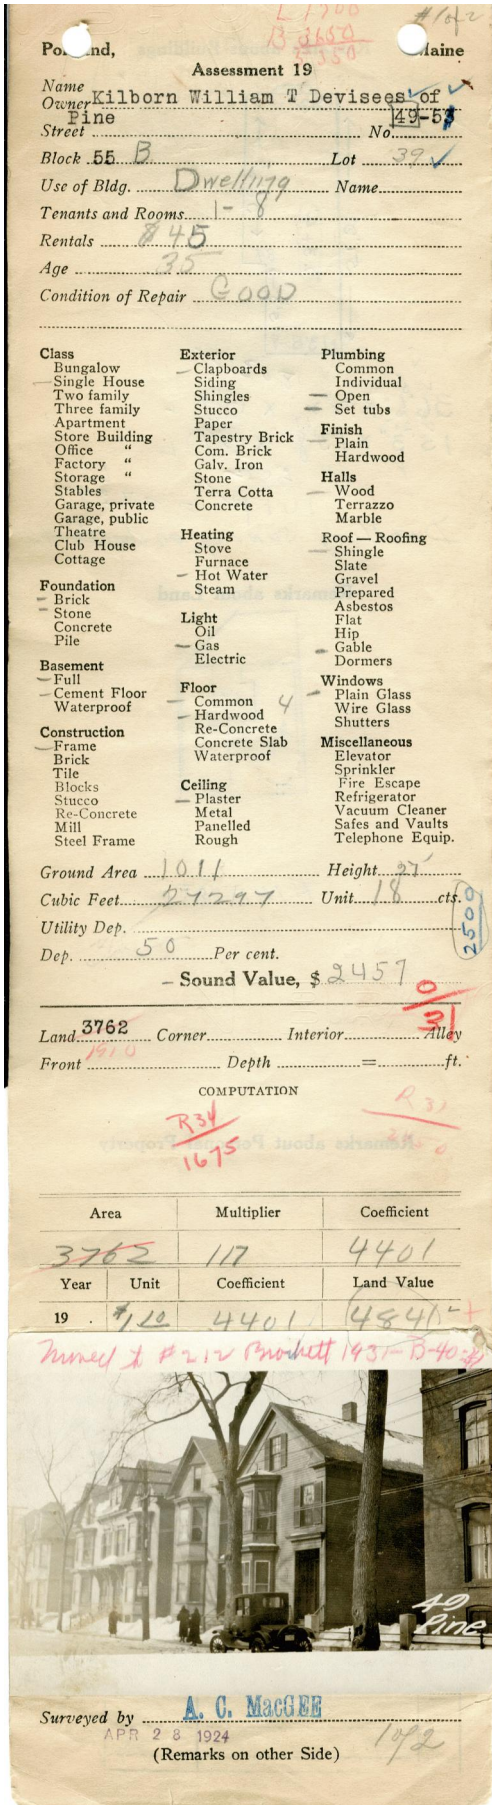 #1 of 2
L 1700
B 3650
5350
Portland, Maine
Assessment 19
Name
Owner Kilborn William T Devisees of
Street Pine No. 49-53
Block 55 B Lot 39
Use of Bldg. Dwelling Name
Tenants and Rooms 1-8
Rentals $45
Age 35
Condition of Repair GOOD
Class
Bungalow
Single House
Two family
Three family
Apartment
Store Building
Office "
Factory "
Storage "
Stables
Garage, private
Garage, public
Theatre
Club House
Cottage
Foundation
Brick
Stone
Concrete
Pile
Basement
Full
Cement Floor
Waterproof
Construction
Frame
Brick
Tile
Blocks
Stucco
Re-Concrete
Mill
Steel Frame
Exterior
Clapboards
Siding
Shingles
Stucco
Paper
Tapestry Brick
Com. Brick
Galv. Iron
Stone
Terra Cotta
Concrete
Heating
Stove
Furnace
Hot Water
Steam
Light
Oil
Gas
Electric
Floor
Common
Hardwood 4
Re-Concrete
Concrete Slab
Waterproof
Ceiling
Plaster
Metal
Panelled
Rough
Plumbing
Common
Individual
Open
Set tubs
Finish
Plain
Hardwood
Halls
Wood
Terrazzo
Marble
Roof — Roofing
Shingle
Slate
Gravel
Prepared
Asbestos
Flat
Hip
Gable
Dormers
Windows
Plain Glass
Wire Glass
Shutters
Miscellaneous
Elevator
Sprinkler
Fire Escape
Refrigerator
Vacuum Cleaner
Safes and Vaults
Telephone Equip.
Ground Area 1011 Height 27'
Cubic Feet 27297 Unit 18 cts.
2500
Utility Dep.
Dep. 50 Per cent.
Sound Value, $ 2457
0/31
Land 3762 Corner Interior Alley
1910
Front Depth = ft.
COMPUTATION
R34
1675
R 31
Area Multiplier Coefficient
3762 117 4401
Year Unit Coefficient Land Value
19 . $1.10 4401 4841
Moved to #212 Brackett 1931-B-40
49
Pine
Surveyed by A. C. MacGEE
APR 28 1924
1 of 2
(Remarks on other Side)